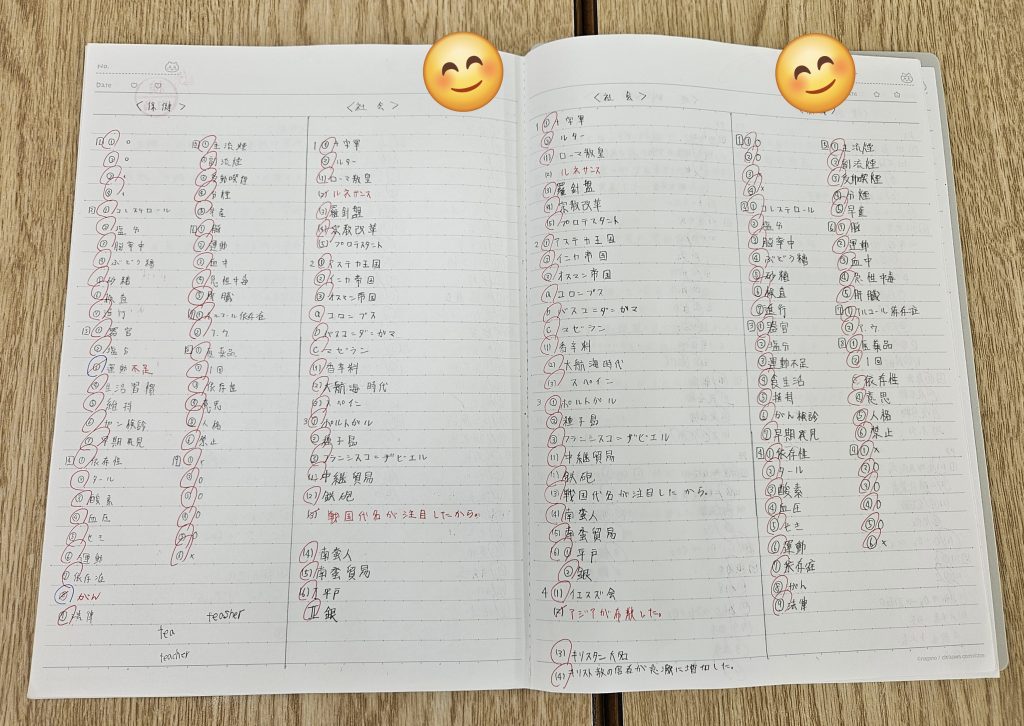 No.
Date
〈保健〉
1 ① ○
② ○
③ ×
④ ×
2 ① コレステロール
② 塩分
③ 脳卒中
④ ぶどう糖
⑤ 砂糖
⑥ 検査
⑦ 進行
3 ① 器官
② 塩分
③ 運動不足
④ 生活習慣
⑤ 維持
⑥ ガン検診
⑦ 早期発見
4 ① 依存性
② タール
③ 酸素
④ 血圧
⑤ せき
⑥ 運動
⑦ 依存症
⑧ がん
⑨ 法律
5 ① 主流煙
② 副流煙
③ 受動喫煙
④ 分煙
⑤ 早産
6 ① 脳
② 運動
③ 血中
④ 急性中毒
⑤ 肝臓
7 ① アルコール依存症
② ア,ウ
8 ① 医薬品
② 1回
③ 依存性
④ 意思
⑤ 人格
⑥ 禁止
9 ① ×
② ○
③ ○
④ ○
⑤ ○
⑥ ×
teasher
tea
teacher
〈社会〉
1 ① 十字軍
② ルター
(1) ローマ教皇
(2) ルネサンス
(3) 羅針盤
(4) 宗教改革
(5) プロテスタント
2 ① アステカ王国
② インカ帝国
③ オスマン帝国
a コロンブス
b バスコ=ダ=ガマ
c マゼラン
(1) 香辛料
(2) 大航海時代
(3) スペイン
3 ① ポルトガル
②種子島
③ フランシスコ=ザビエル
(1) 中継貿易
(2) 鉄砲
(3) 戦国大名が注目したから。
(4) 南蛮人
(5) 南蛮貿易
(6) I 平戸
II 銀
〈社会〉
1 ① 十字軍
② ルター
(1) ローマ教皇
(2) ルネサンス
(3) 羅針盤
(4) 宗教改革
(5) プロテスタント
2 ① アステカ王国
② インカ帝国
③ オスマン帝国
a コロンブス
b バスコ=ダ=ガマ
c マゼラン
(1) 香辛料
(2) 大航海時代
(3) スペイン
3 ① ポルトガル
② 種子島
③ フランシスコ=ザビエル
(1) 中継貿易
(2) 鉄砲
(3) 戦国大名が注目したから。
(4) 南蛮人
(5) 南蛮貿易
(6) ① 平戸
② 銀
4 (1) イエズス会
(2) アジアが布教した。
(3) キリシタン大名
(4) キリスト教の信者が急激に増加した。
1 ① ○
② ○
③ ×
④ ×
2 ① コレステロール
② 塩分
③ 脳卒中
④ ぶどう糖
⑤ 砂糖
⑥ 検査
⑦ 進行
3 ① 器官
② 塩分
③ 運動不足
④ 食生活
⑤ 維持
⑥ がん検診
⑦ 早期発見
4 ① 依存性
② タール
③ 酸素
④ 血圧
⑤ せき
⑥ 運動
⑦ 依存症
⑧ がん
⑨ 法律
5 ① 主流煙
② 副流煙
③ 受動喫煙
④ 分煙
⑤ 早産
6 ① 脳
② 運動
③ 血中
④ 急性中毒
⑤ 肝臓
7 ① アルコール依存症
② ア,ウ
8 ① 医薬品
② 1回
③ 依存性
④ 意思
⑤ 人格
⑥ 禁止
9 ① ×
② ○
③ ○
④ ○
⑤ ○
⑥ ×